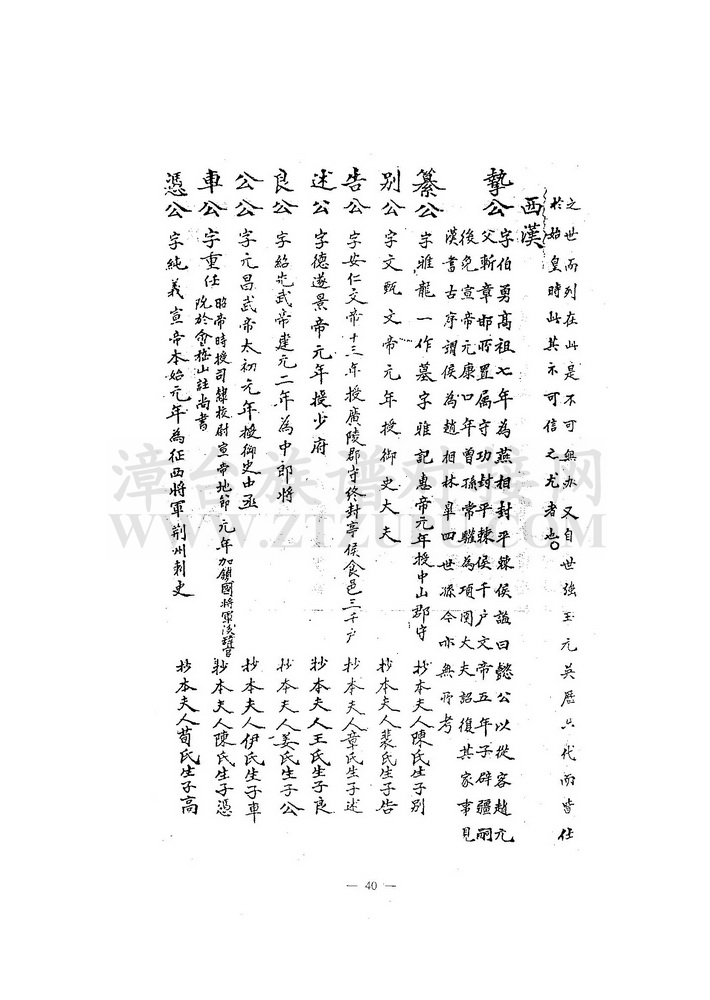 之世而列在此是不可無办又自世強至元英歷六代而皆任
於始皇時此其不可信之尤者也。
西漢
摯公 字伯勇高祖七年為燕相封平棘侯謚曰懿公以從容趙亢
父斬章邯所置属守功封平棘侯千户文帝五年子辟疆嗣
後免宣帝元康口年曾孫常驩為項圉大夫詔復其家事見
漢書古序謂侯為趙相林皐四世源今亦無所考
纂公 字雅龍一作墓字雅記惠帝元年授中山郡守 抄本夫人陳氏生子别
别公 字文甄文帝元年授御史大夫 抄本夫人裴氏生子告
告公 字安仁文帝十三年授廣陵郡守終封亭侯食邑三千户 抄本夫人章氏生子述
述公 字德遂景帝元年授少府 抄本夫人王氏生子良
良公 字紹先武帝建元二年為中郎将 抄本夫人姜氏生子公
公公 字元昌武帝太初元年授御史中丞 抄本夫人伊氏生子車
車公 字重任 昭帝時授司隸校尉宣帝地節元年加鎮國将軍後
院於會稽山註尚書 抄本夫人陳氏生子憑
憑公 字純義宣帝本始元年為征西将軍荆州刺史 抄本夫人荀氏生子高
— 40 —
漳台族谱对接网
WWW.ZTZUPU.COM